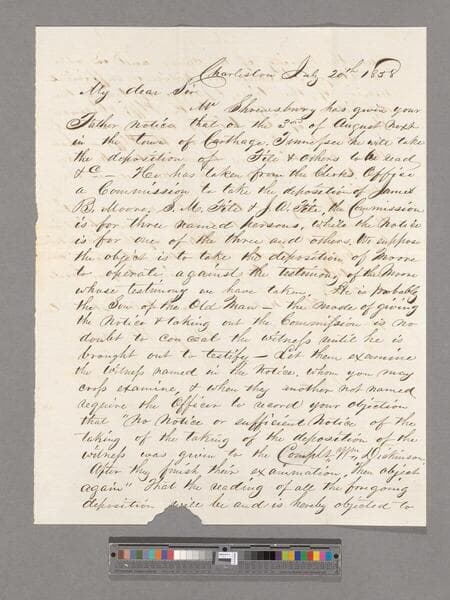 Charleston July 20th 1858
My dear Sir
Mr Shrewsbury has given your
Father notice that on the 3rd of August next
in the town of Carthage, Tennessee he will take
the deposition of Fite & others to be read
&c — He has taken from the Clerks Office
a Commission to take the deposition of James
B. Moore, S. M. Fite & J. A. Fite, the Commission
is for three named persons, while the Notice
is for one of the three and others. We suppose
the object is to take the deposition of Moore
to operate against the testimony of the Moore
whose testimony we have taken. He is probably
the Son of the Old Man — the mode of giving
the Notice & taking out the Commission is no
doubt to conceal the witness until he is
brought out to testify — Let them examine
the Witness named in the Notice, whom you may
cross examine, & when they another not named
require the Officer to record your objection
that "No Notice or sufficient Notice of the
taking of the taking of the deposition of the
witness was given to the Complt Wm Dickinson"
After they finish their examination, Then object
again "That the reading of all the foregoing
deposition will be and is hereby objected to